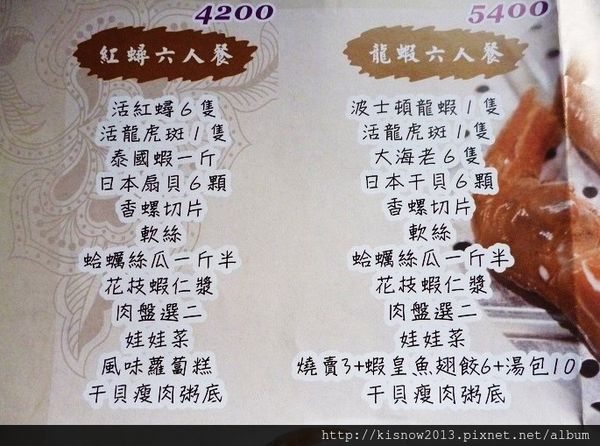 4200
紅蟳六人餐
活紅蟳6隻
活龍虎斑1隻
泰國蝦一斤
日本扇貝6顆
香螺切片
軟絲
蛤蠣絲瓜一斤半
花枝蝦仁漿
肉盤選二
娃娃菜
風味蘿蔔糕
干貝瘦肉粥底
5400
龍蝦六人餐
波士頓龍蝦1隻
活龍虎斑1隻
大海老6隻
日本干貝6顆
香螺切片
軟絲
蛤蠣絲瓜一斤半
花枝蝦仁漿
肉盤選二
娃娃菜
燒賣3+蝦皇魚翅餃6+湯包10
干貝瘦肉粥底
http://kisnow2013.pixnet.net/album